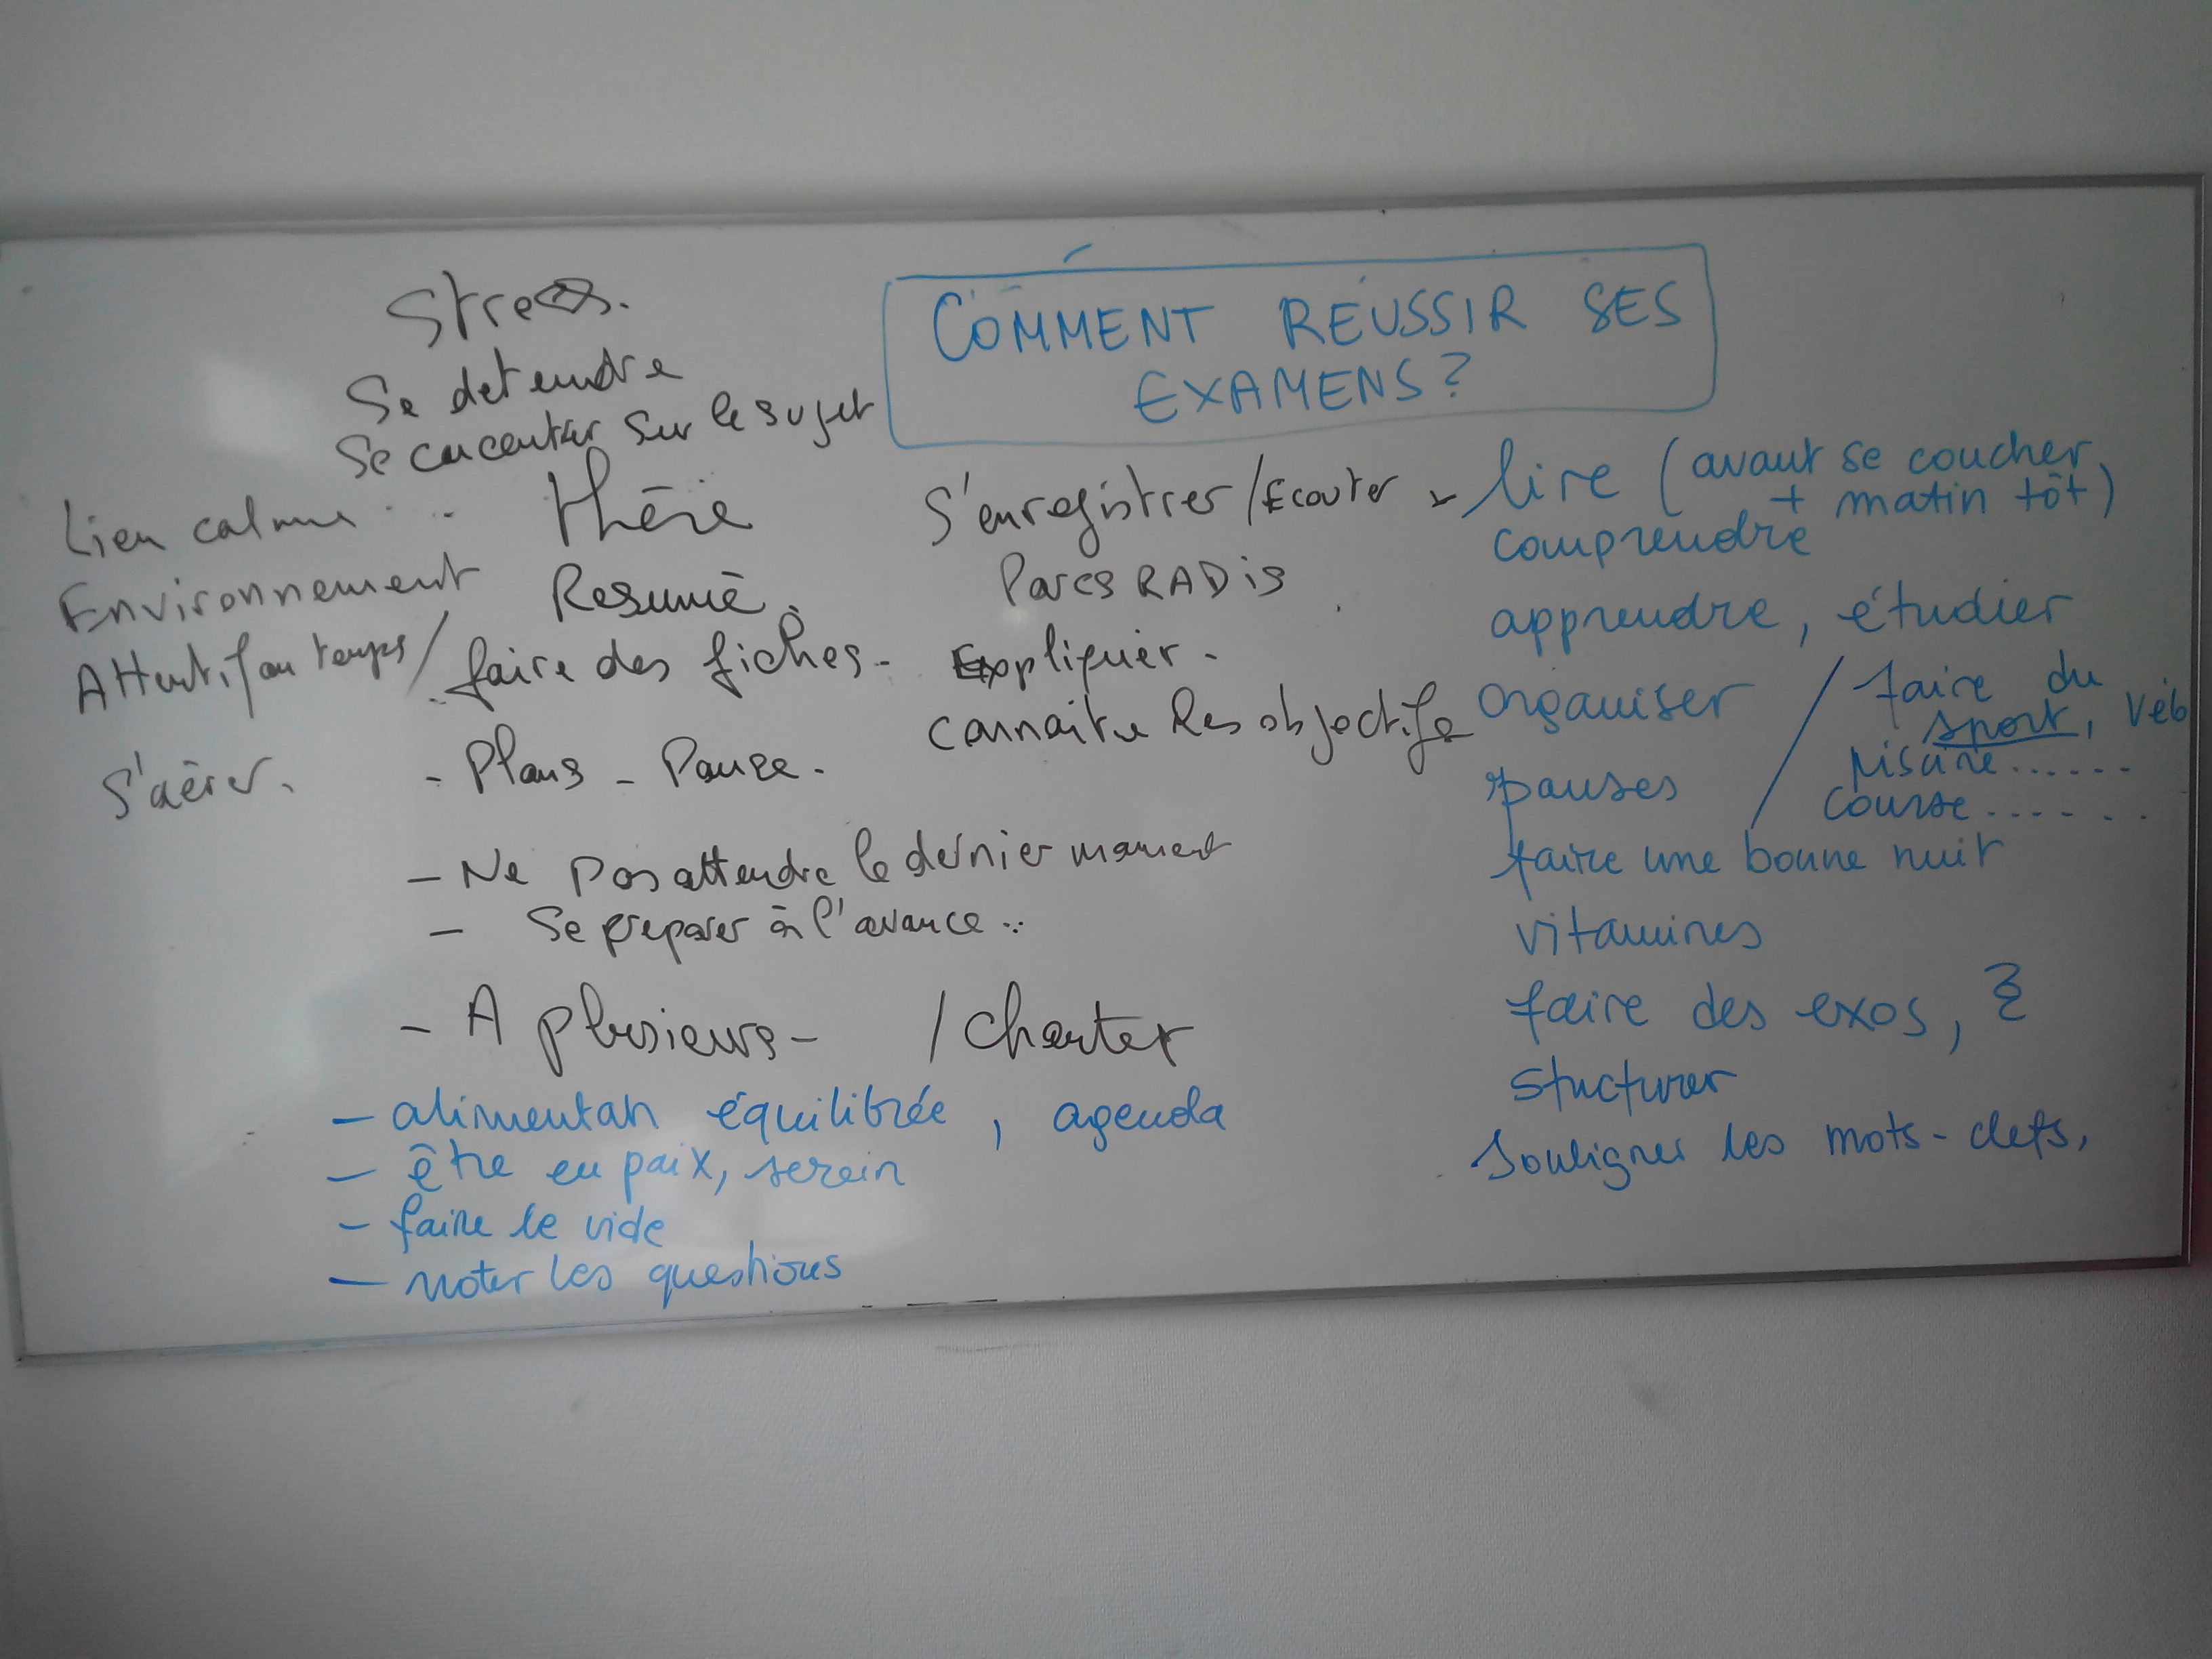 COMMENT RÉUSSIR SES
EXAMENS?
Stress.
Se detendre
Se concentrer sur le sujet
Lieu calme
Environnement
Attentif au temps /
S'aérer.
Resumé
faire des fiches -
- Plans - Pause.
- Ne pas attendre le dernier moment
- Se preparer à l'avance ..
- A plusieurs - / Chanter
- alimentat° équilibrée, agenda
- être en paix, serein
- faire le vide
- noter les questions
S'enregistrer / Ecouter
Expliquer -
connaitre les objectifs
lire (avant se coucher
+ matin tôt)
comprendre
apprendre, étudier
organiser
pauses
/ faire du
sport, vélo
piscine ......
course ......
faire une bonne nuit
vitamines
faire des exos,
stucturer
souligner les mots-clefs,